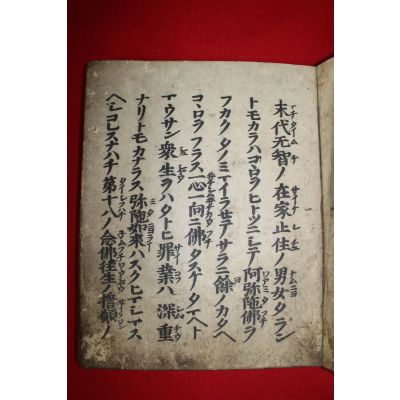 末代无智ノ在家止住ノ男女タラン
トモカラハコヽロヲヒトツニシテ阿弥陁佛ヲ
フカクタノミマイラセテサラニ餘ノカタヘ
コヽロヲフラス一心一向ニ佛タスケタマヘト
マウサン衆生ヲハタトヒ罪業ハ深重
ナリトモカナラス弥陁如来ハスクヒマシマス
ヘシコレスナハチ第十八ノ念佛往生ノ誓願ノ